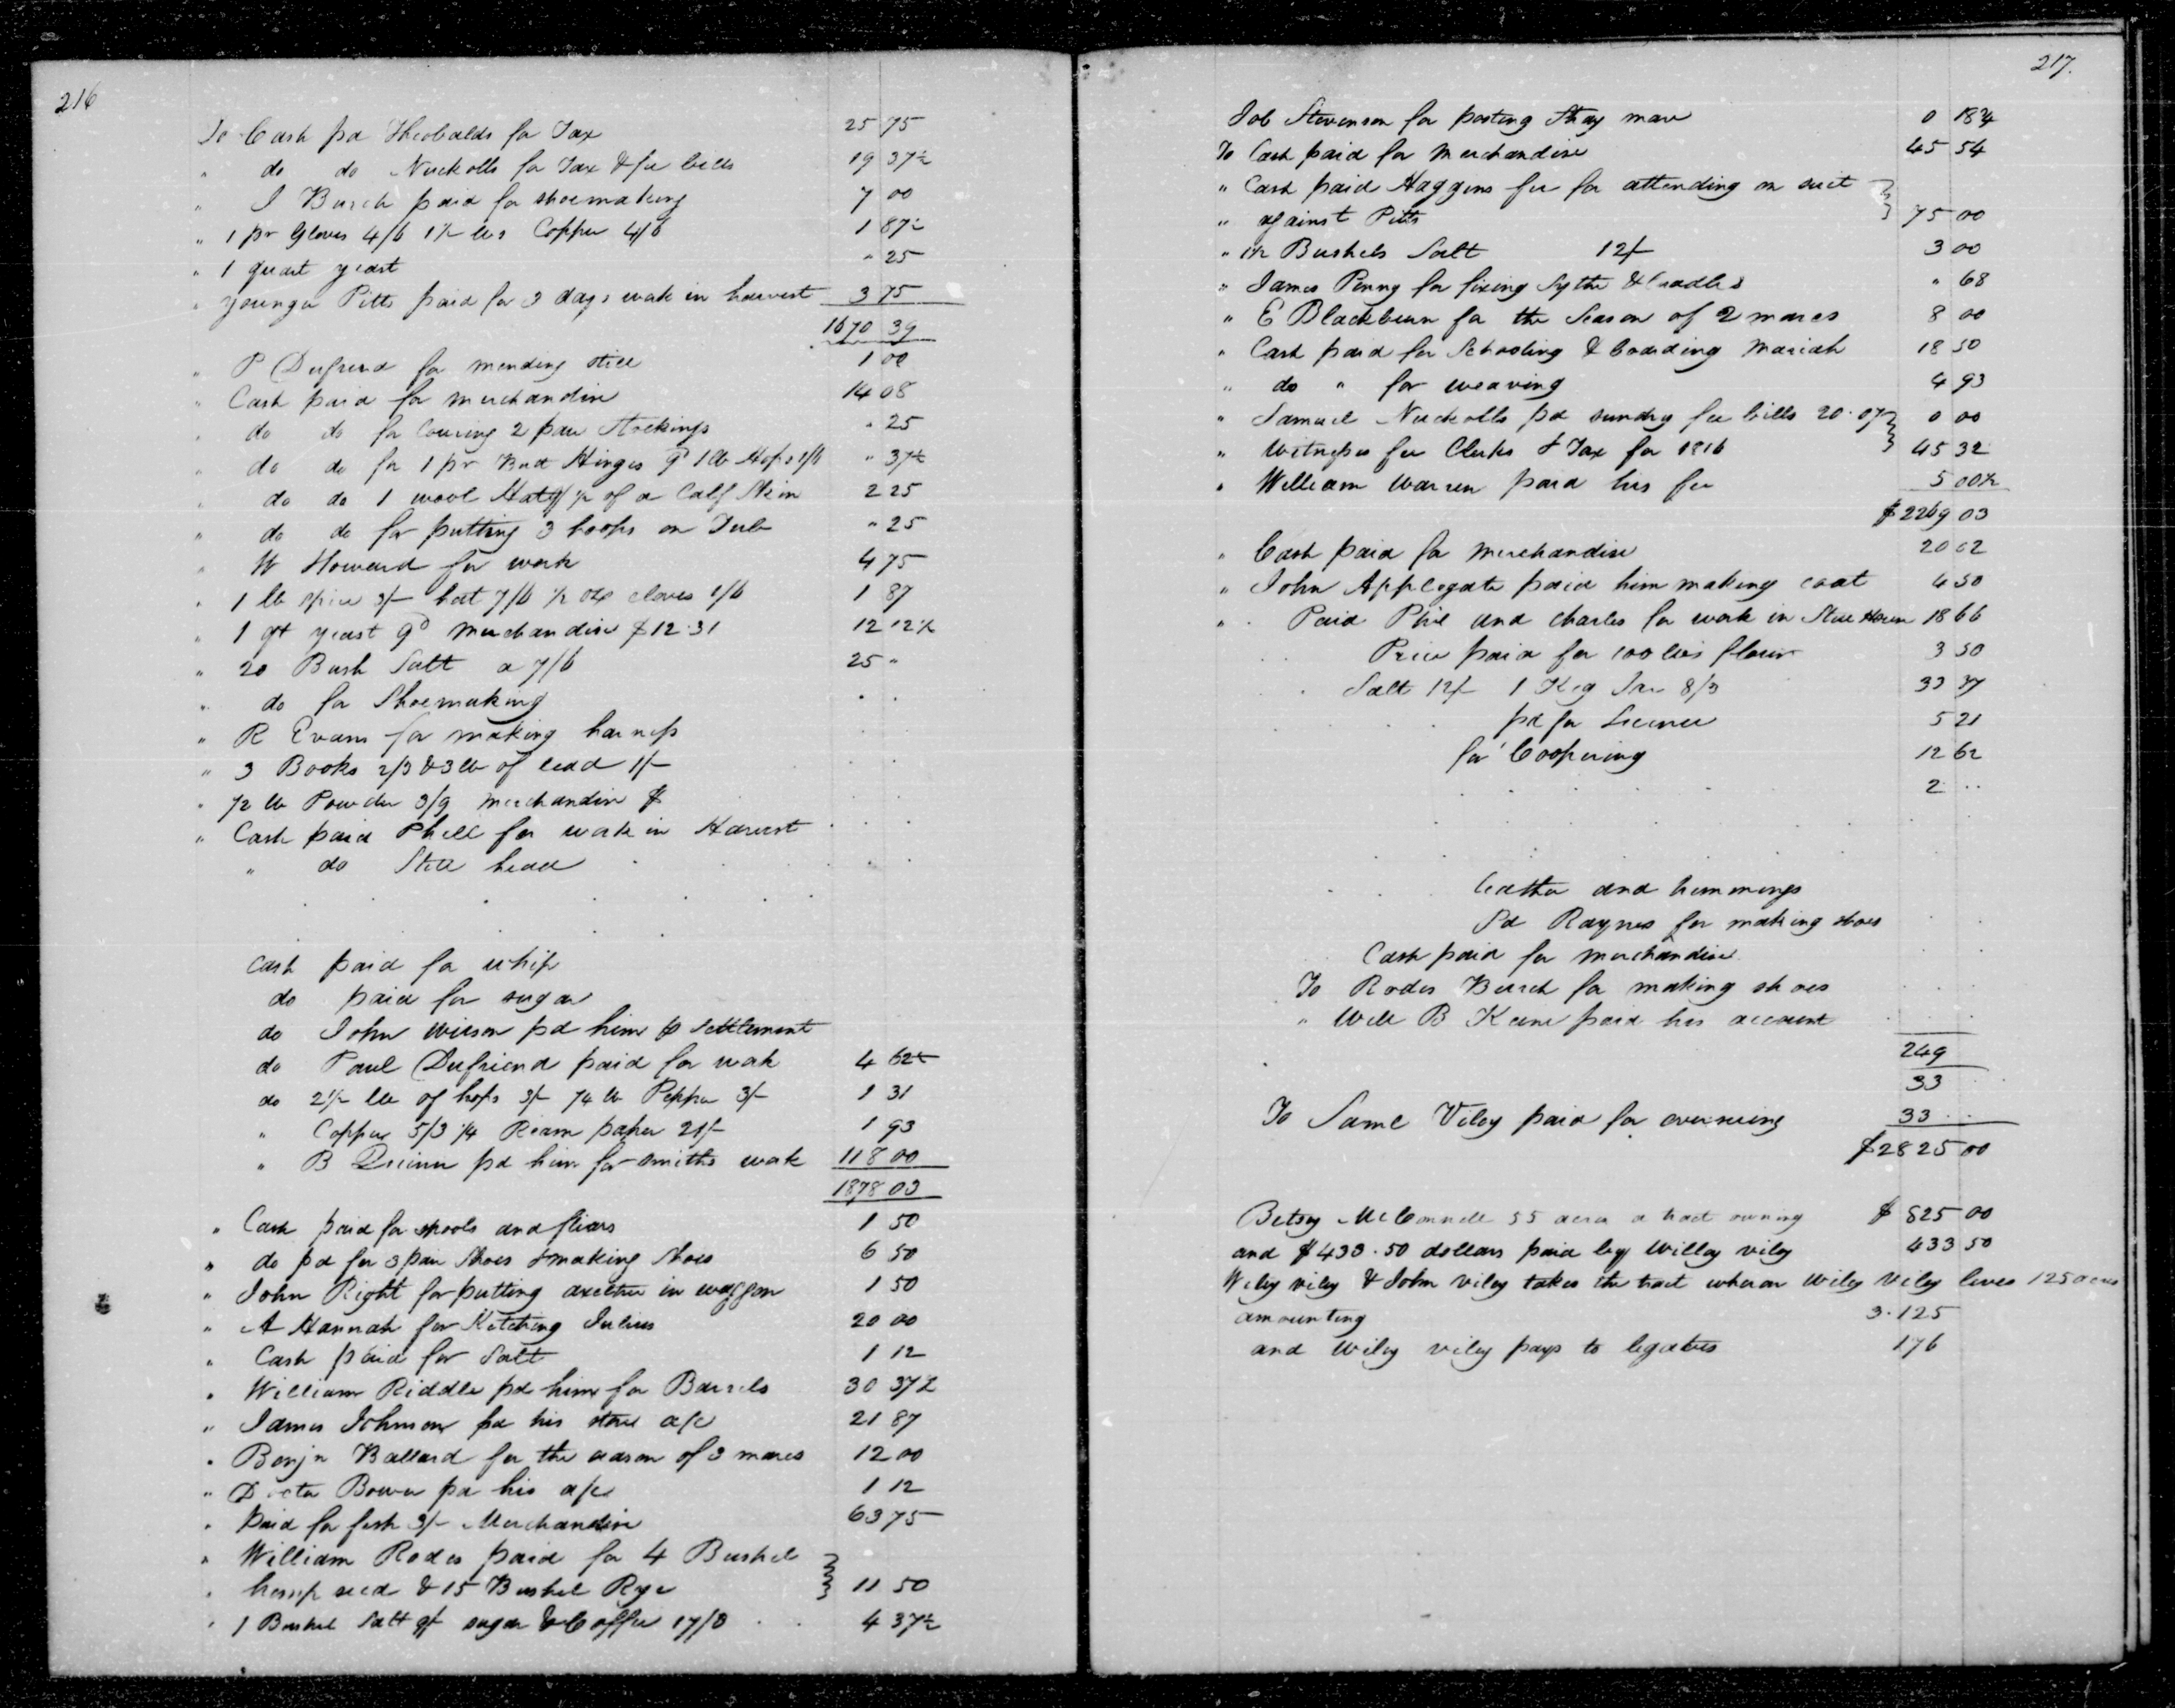 216
To Cash pd Theobalds for Tax 25 75
" do do Nuckolls for Tax & fee bills 19 37½
" I Burch paid for shoemaking 7 00
" 1 pr Gloves 4/6 1½ lbs Copper 4/6 1 87½
" 1 quart yeast " 25
" younger Pitts paid for 3 days work in harvest 3 75
1670 39
" P Dufriend for mending still 1 00
" Cash paid for merchandise 14 08
" do do for 2 pair Stockings " 25
" do do for 1 pr Butt Hinges 9d 1 lb Hops 1/6 " 37½
" do do 1 wool Hat ½ of a Calf Skin 2 25
" do do for putting 3 hoops on Tub " 25
" W Howard for work 4 75
" 1 lb spice 3/- hat 7/6 ½ oz cloves 1/6 1 87
" 1 qt yeast 9d merchandise $12.31 12 12½
" 20 Bush Salt a 7/6 25 "
" do for Shoemaking
" R Evans for making harness
" 3 Books 2/3 & 3 lb of lead 1/-
" ½ lb Powder 3/9 merchandise $
" Cash paid Phill for work in Harvest
" do Still head
Cash paid for whip
do paid for sugar
do John Wilson pd him settlement
do Paul Dufriend paid for work 4 62½
do 2½ lb of hops 3/- ¼ lb Pepper 3/- 1 31
" Copper 5/3 ¼ Ream paper 21/- 1 93
" B Quinn pd him for smiths work 118 00
1878 03
" Cash paid for spools and fliers 1 50
" do pd for 3 pair Shoes & making Shoes 6 50
" John Right for putting axeltree in waggon 1 50
" A Hannah for Ketching Julius 20 00
" Cash paid for Salt 1 12
" William Riddle pd him for Barrels 30 37½
" James Johnson pd his store a/c 21 87
" Benjn Ballard for the season of 3 mares 12 00
" Docter Bower pd his a/c 1 12
" paid for fish 3/- Merchandise 63 75
" William Rodes paid for 4 Bushel
" hemp seed & 15 Bushel Rye 11 50
" 1 Bushel Salt 9/- sugar & Coffee 17/3 4 37½
217.
Job Stevenson for posting Stray mare 0 18¾
To Cash paid for merchandise 45 54
" Cash paid Haggins fee for attending on suit
" against Pitts 75 00
" 1½ Bushels Salt 12/- 3 00
" James Penny for fixing Sythe & Cradles " 68
" E Blackburn for the Season of 2 mares 8 00
" Cash paid for Schooling & boarding Mariah 18 50
" do " for weaving 4 93
" Samuel Nuckolls pd sundry fee bills 20.07 0 00
" Witnesses fee Clerks & Tax for 1816 45 32
" William Warren paid his fee 5 00½
$2269 03
" Cash paid for merchandise 20 62
" John Applegate paid him making coat 4 50
" Paid Phil and Charles for work in Still House 18 66
Price paid for 100 lbs flour 3 50
Salt 12/- 1 Keg 8/3 33 37
pd for License 5 21
for Coopering 12 62
2 ..
leather and trimmings
Pd Raynes for making shoes
Cash paid for merchandise
To Rodes Burch for making shoes
" Will B Keene paid his account
249
33
To Saml Viley paid for overseeing 33 ..
$2825 00
Betsy McConnell 55 acres a tract owning $ 825 00
and $433.50 dollars paid by Willey viley 433 50
Wiley viley & John viley takes the tract whereon Wiley Viley lives 125 acres
amounting 3.125
and Wiley viley pays to legatees 176